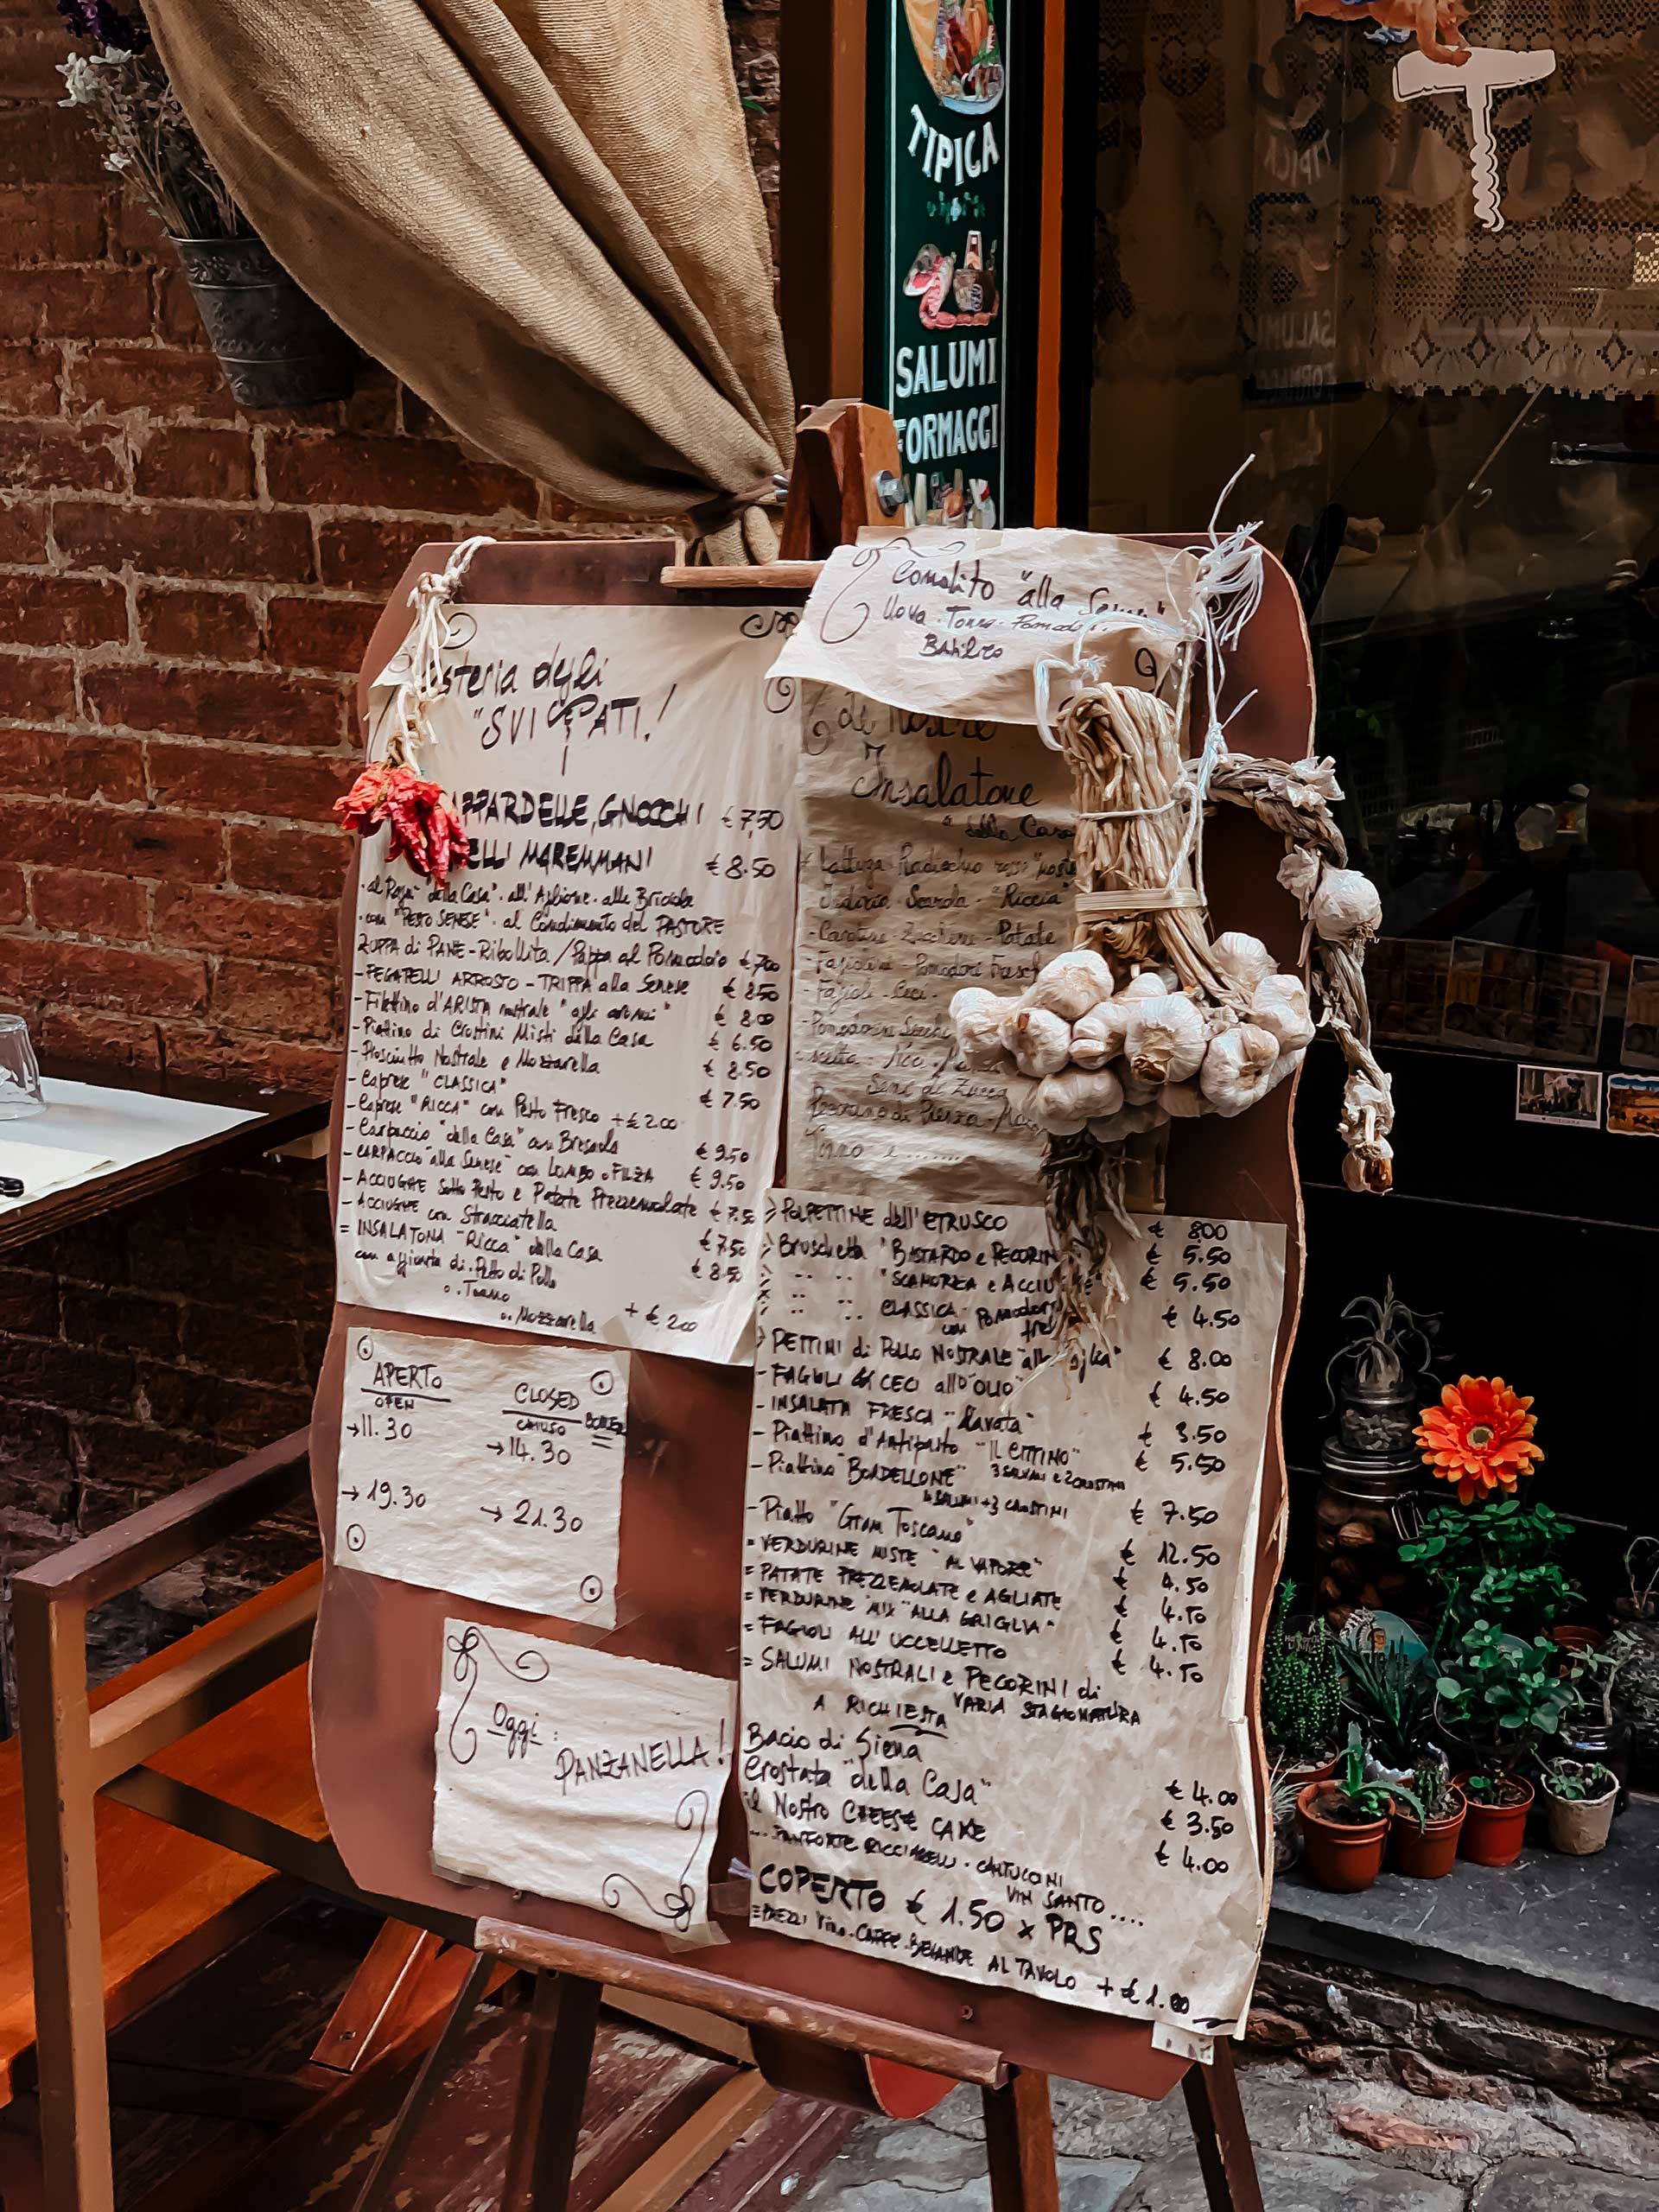 TIPICA
SALUMI
FORMAGGI
"alla
Uova - Tonno - Pomodori
Basilico
steria degli
"SVITATI!
APPARDELLE, GNOCCHI € 7,50
ELLI MAREMMANI € 8.50
- al Ragù "della Casa" - all'Aglione - alle Briciole
- con "PESTO SENESE" - al Condimento del PASTORE
ZUPPA di PANE - Ribollita / Pappa al Pomodoro € 7,00
- FEGATELLI ARROSTO - TRIPPA alla Senese € 8.50
- Filettino d'ARISTA nostrale "agli aromi" € 8.00
- Piattino di Crostini Misti della Casa € 6.50
- Prosciutto Nostrale e Mozzarella € 8.50
- Caprese "CLASSICA" € 7.50
- Caprese "RICCA" con Pesto Fresco + € 2.00
- Carpaccio "della Casa" con Bresaola € 9.50
- CARPACCIO "alla Senese" con LOMBO o FILZA € 9.50
- ACCIUGHE sotto Pesto e Patate Prezzemolate € 7.50
- ACCIUGHE con Stracciatella € 7.50
= INSALATONA "Ricca" della Casa € 8.50
con aggiunta di . Petto di Pollo
. Tonno
. Mozzarella + € 2.00
le Nostre
Insalatone
"della Casa
Lattuga - Radicchio rosso
Indivia - Scarola - "Riccia"
- Carotine - Zucchine - Patate
- Fagiolini - Pomodori Fresch
- Fagioli - Ceci -
- Pomodorini Secchi
scelta - Noci -
Semi di Zucca
Pecorino di Pienza -
Tonno e ........
POLPETTINE dell'ETRUSCO € 8.00
Bruschetta "BASTARDO e PECORIN € 5.50
" " "SCAMORZA e ACCIU € 5.50
" " CLASSICA - Pomodori € 4.50
con
PETTINI di Pollo NOSTRALE € 8.00
- FAGIOLI & CECI all'"OLIO" € 4.50
- INSALATA FRESCA "lavata" € 3.50
- Piattino d'Antipasto "IL CITTINO" € 5.50
3 SALUMI e 2 CROSTINI
- Piattino "BORDELLONE" € 7.50
4 SALUMI + 3 CROSTINI
- Piatto "Gran Toscano" € 12.50
= VERDURINE MISTE "AL VAPORE" € 4.50
= PATATE PREZZEMOLATE e AGLIATE € 4.50
= VERDURINE MIX "ALLA GRIGLIA" € 4.50
= FAGIOLI ALL'UCCELLETTO € 4.50
= SALUMI NOSTRALI e PECORINI di
VARIA STAGIONATURA
A RICHIESTA
Bacio di Siena € 4.00
Crostata "della Casa" € 3.50
il Nostro CHEESE CAKE € 4.00
.... PANFORTE RICCIARELLI - CANTUCCINI
VIN SANTO ....
COPERTO € 1.50 x PRS
= PREZZI Vino - CAFFE - BEVANDE AL TAVOLO + € 1.00
APERTO
OPEN
→ 11.30
→ 19.30
CLOSED
CHIUSO
→ 14.30
→ 21.30
Oggi:
PANZANELLA!